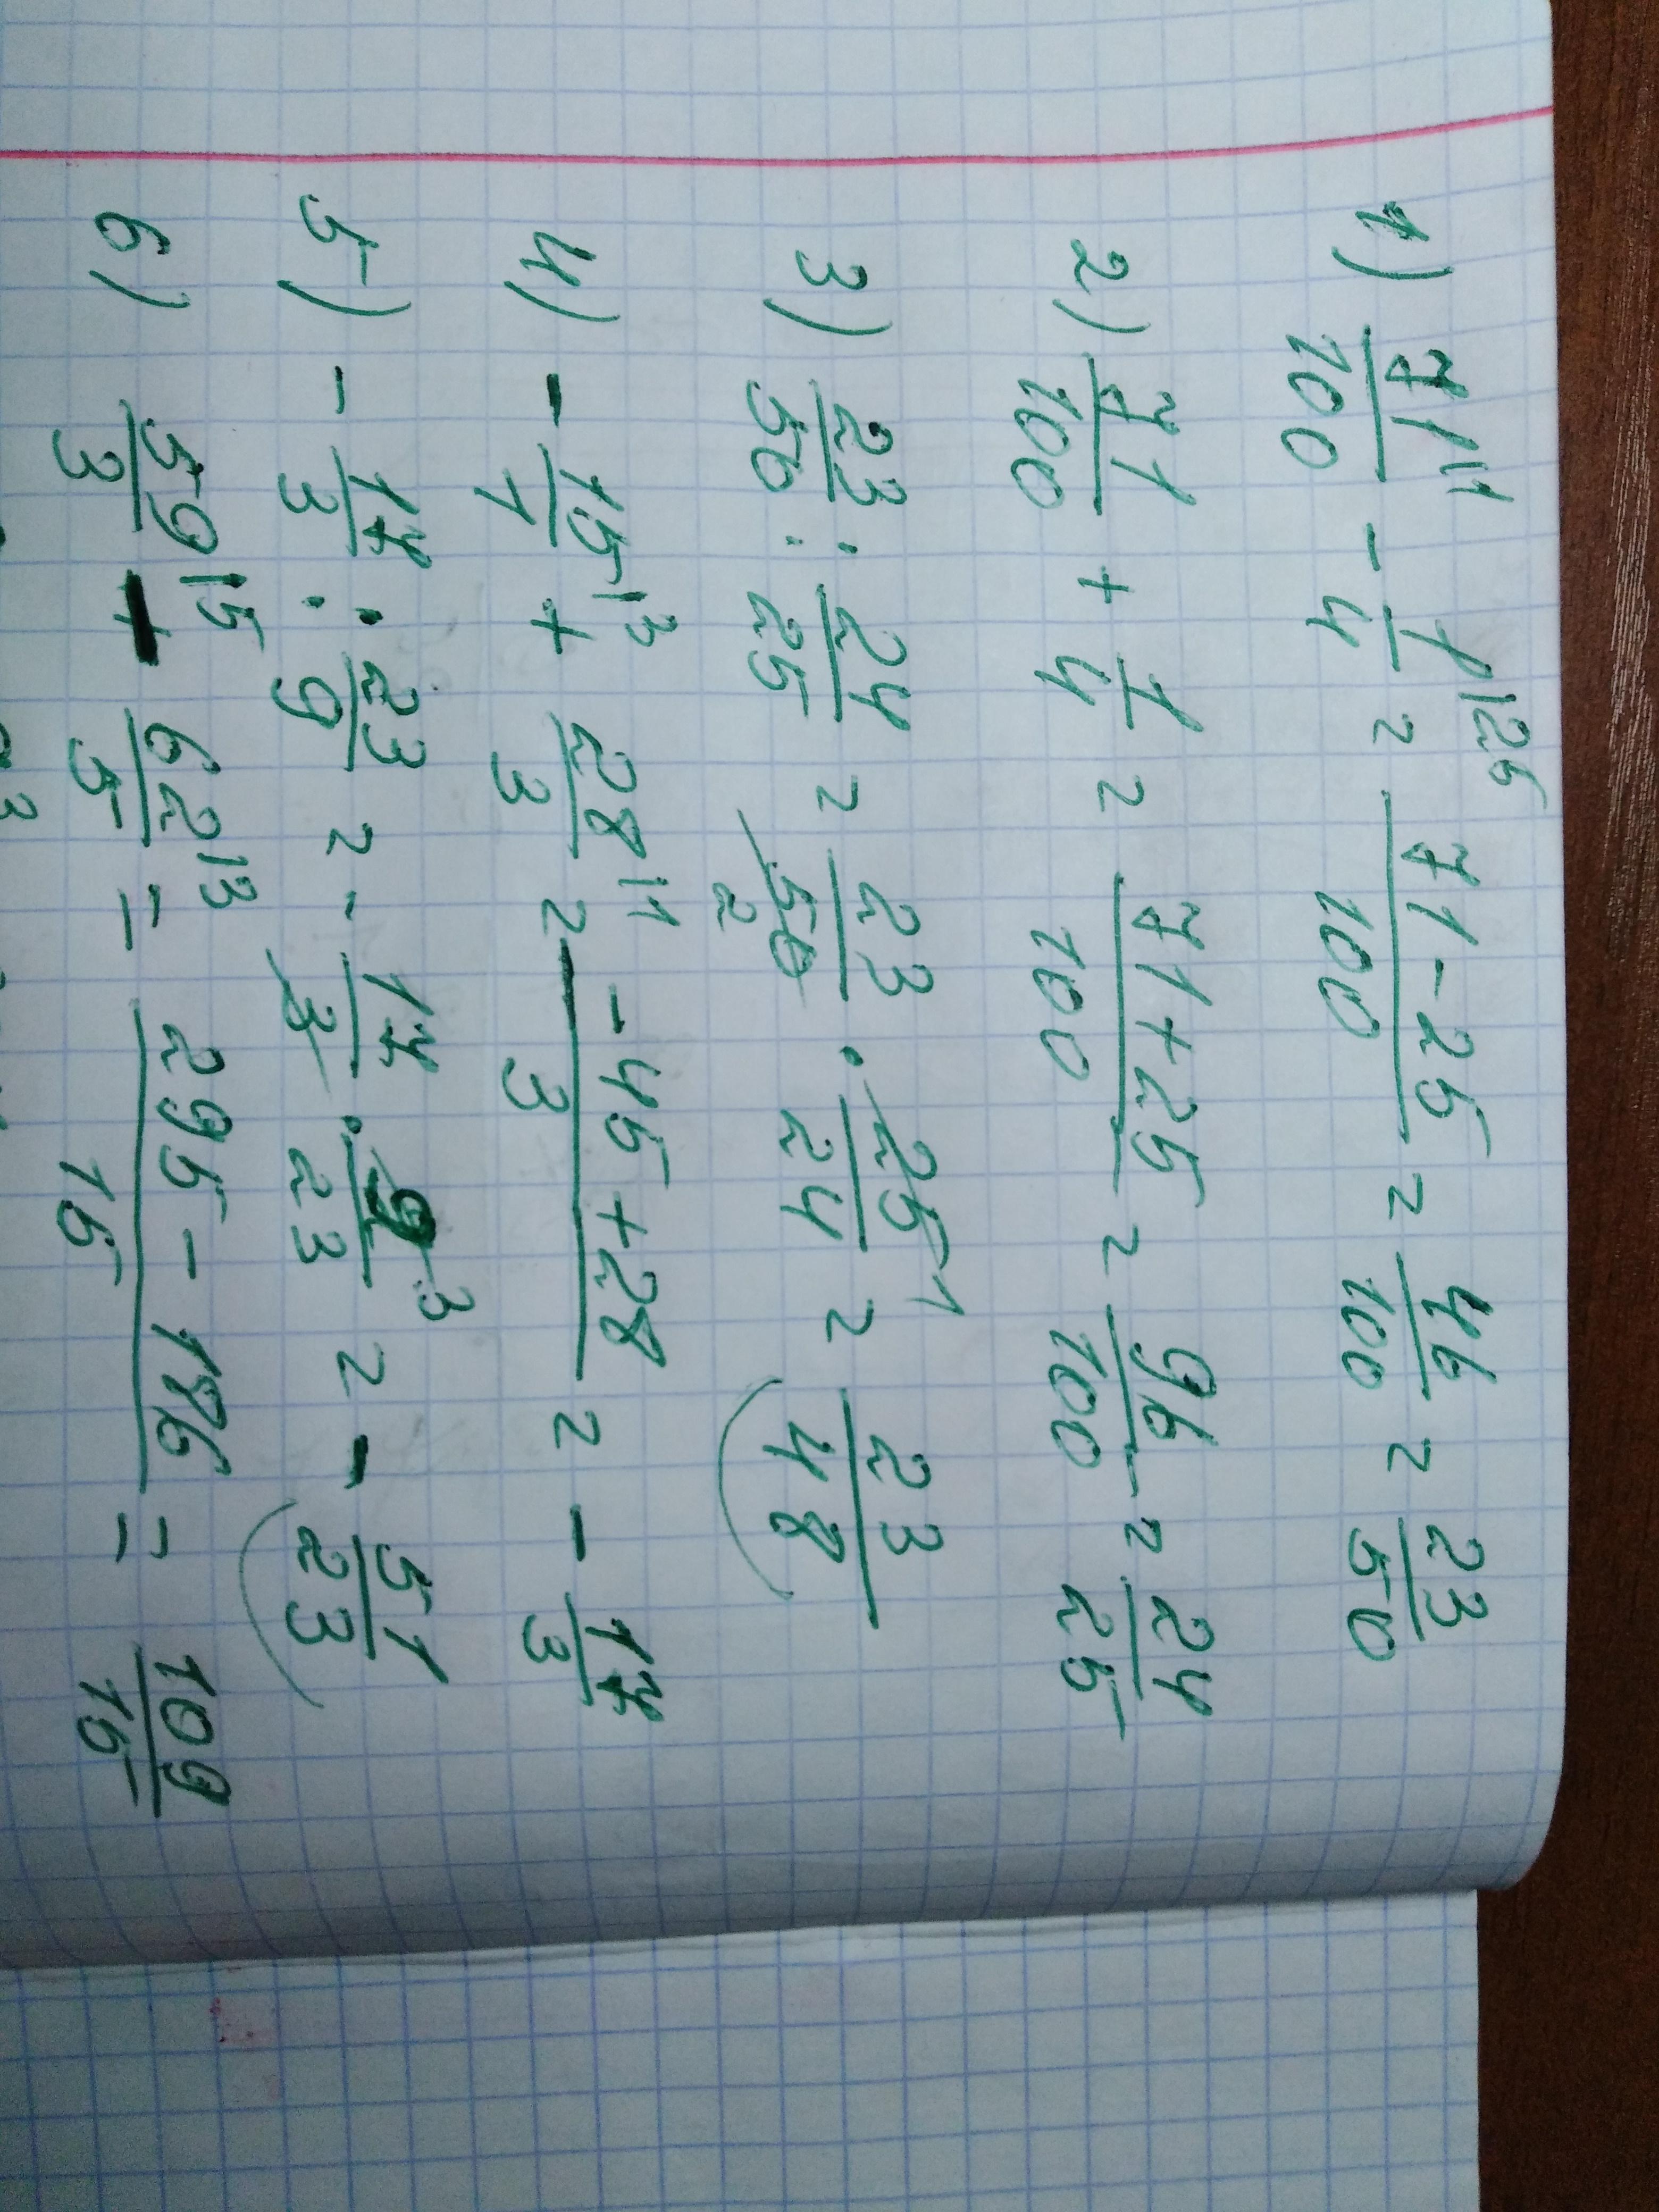 1) 71/100 |1 - 1/4 |25 = 71-25/100 = 46/100 = 23/50
2) 71/100 + 1/4 = 71+25/100 = 96/100 = 24/25
3) 23/50 : 24/25 = 23/50 2 · 25/24 1 = 23/48
4) - 15/1 |3 + 28/3 |1 = -45+28/3 = - 17/3
5) - 17/3 : 23/9 = - 17/3 · 9/23 3 = - 51/23
6) 59/3 |5 - 62/5 |3 = 295-186/15 = 109/15